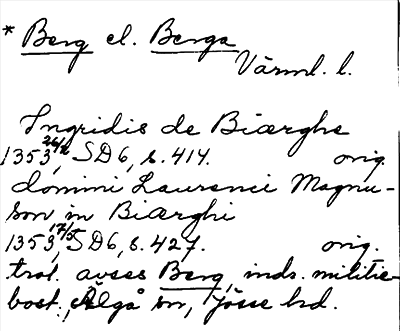 * Berg el. Berga
Värml. l.
Ingridis de Biærghe
1353 26/2, SD6, s. 414. orig.
domini Laurencii Magnus-
son in Biærghi
1353 17/5, SD6, s. 427. orig.
trol. avses Berg, inds. militie-
bost., Älgå sn, Jösse hd.